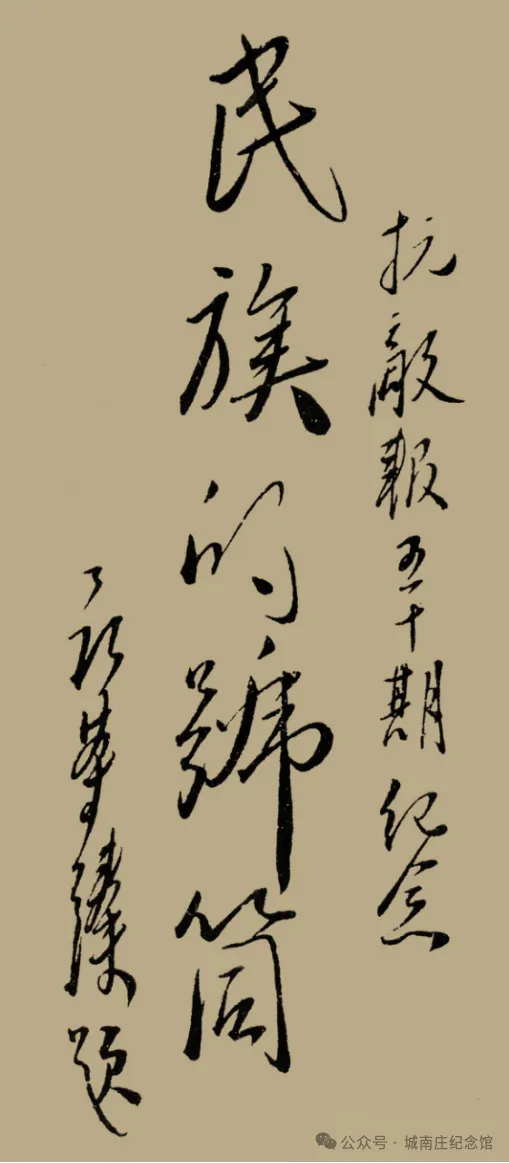 抗敵報五十期紀念
民族的號筒
聶榮臻題
公众号·城南庄纪念馆